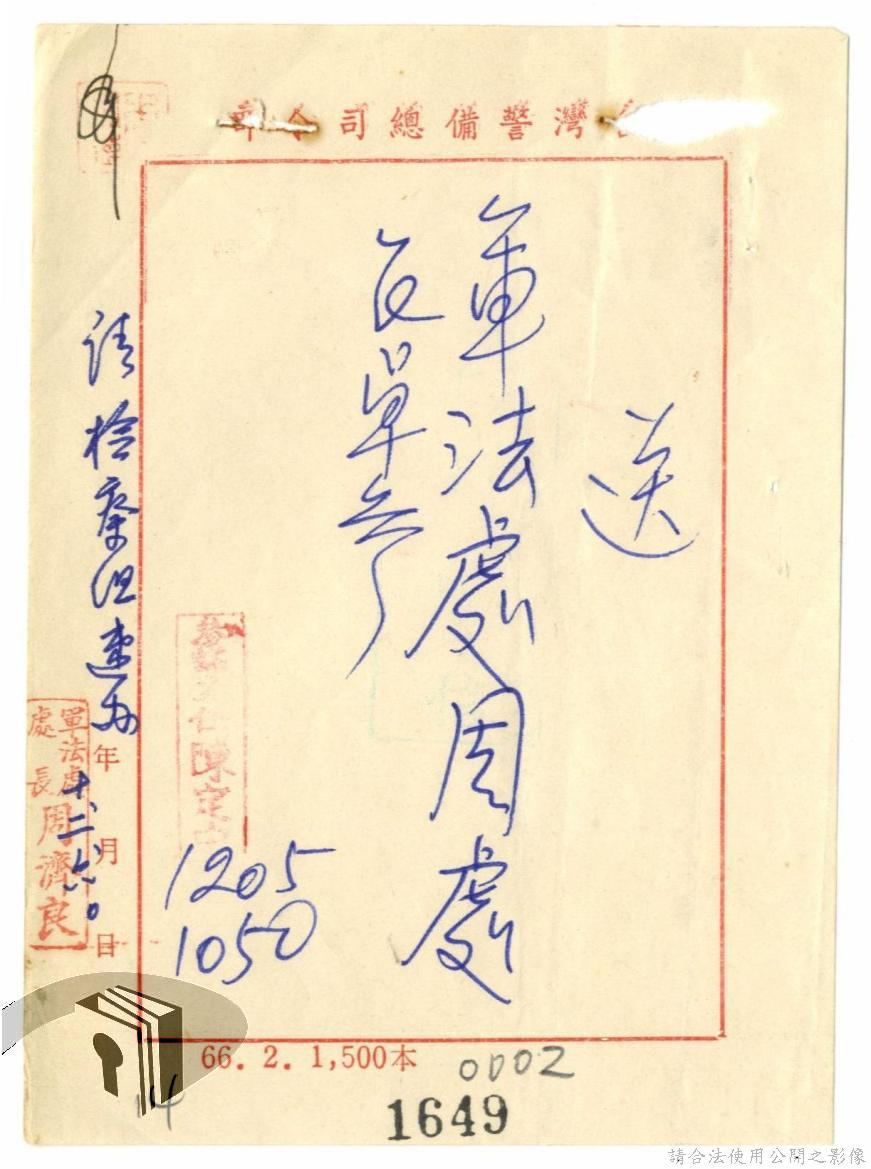 台灣警備總司令部
送
軍法處周處
長單
請檢察組速辦
軍法處
處長
周濟良
十二、六。
年 月 日
陳定中
1205
1050
66. 2. 1,500本
0002
1649
14
請合法使用公開之影像